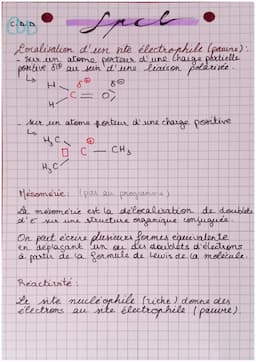 Spcl
Localisation d'un site électrophile (pauvre) :
- sur un atome porteur d'une charge partielle
positive δ⊕ au sein d'une liaison polarisée.
H δ⊕ δ⊖
C = O
H
- sur un atome porteur d'une charge positive
H₃C ⊕
C - CH₃
H₃C
Mésomérie : (pas au programme)
La mésomérie est la délocalisation de doublets
d'e⁻ sur une structure organique conjuguée.
On peut écrire plusieurs formes équivalente
en déplaçant un ou des doublets d'électrons
à partir de la formule de Lewis de la molécule.
Réactivité :
Le site nucléophile (riche) donne des
électrons au site électrophile (pauvre).